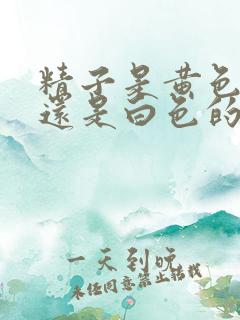 精子是黃色
還是白色的
一天到晚
未经同意禁止转载